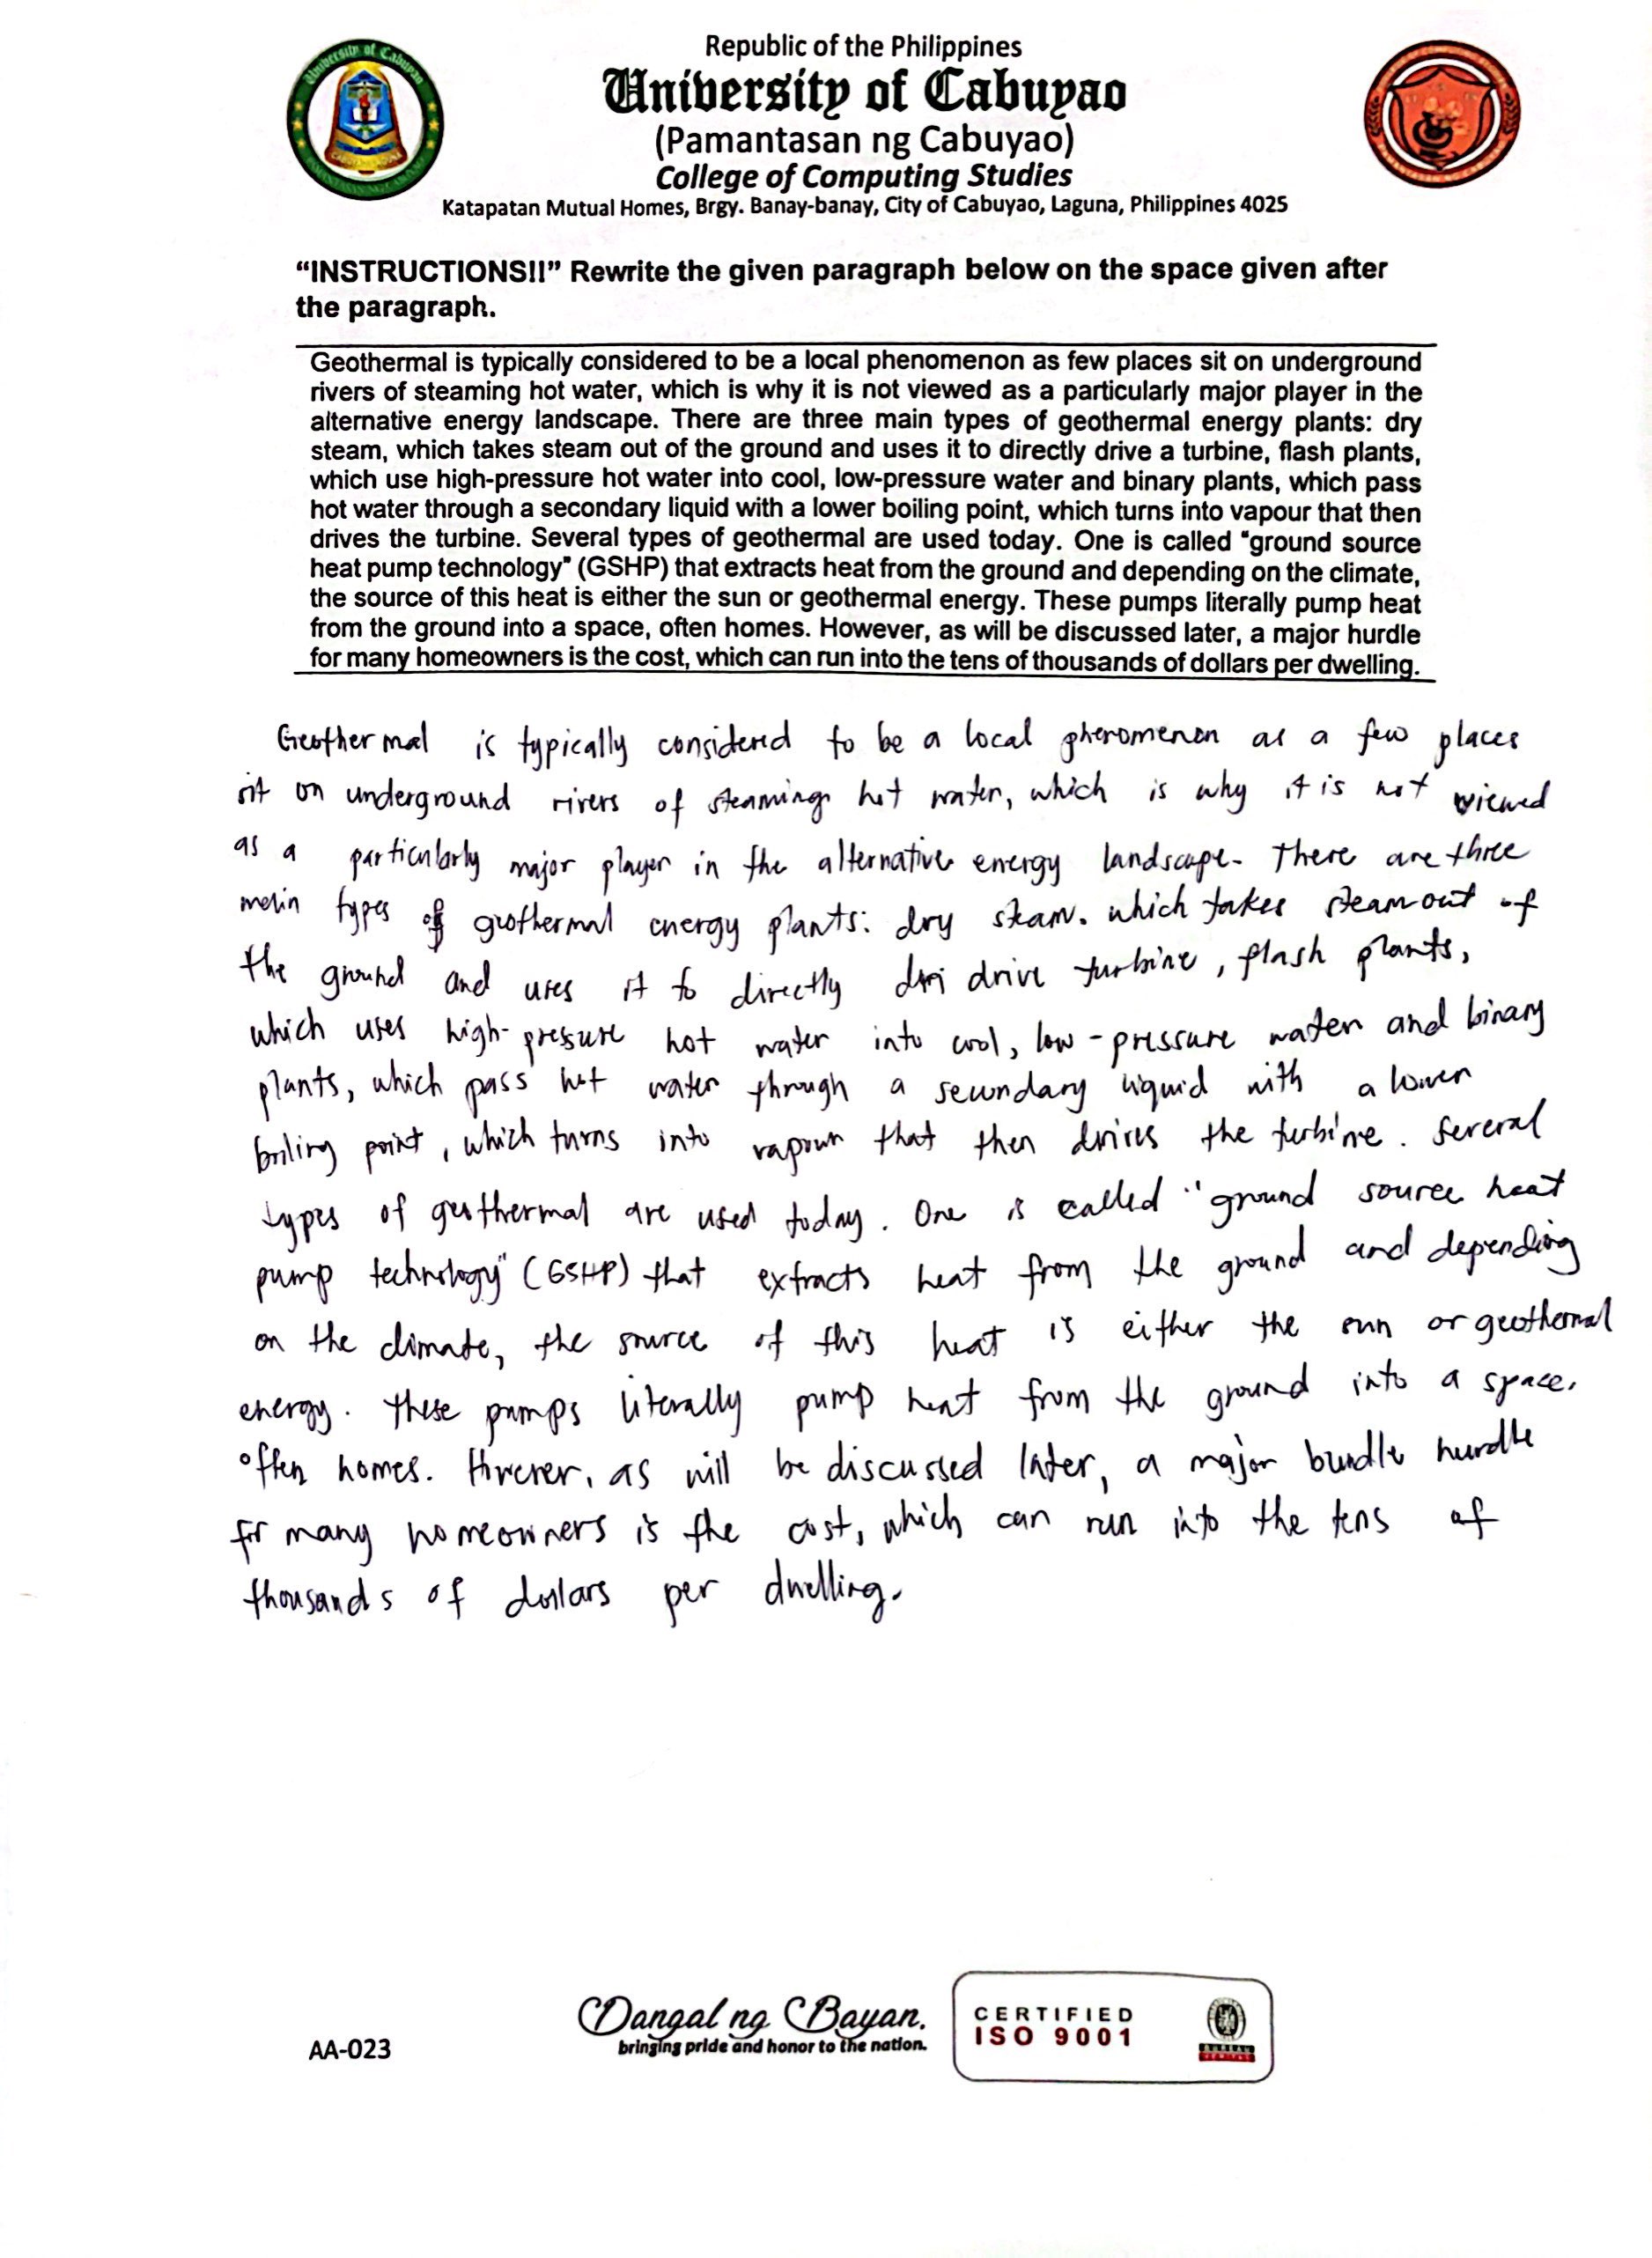 Republic of the Philippines
University of Cabuyao
(Pamantasan ng Cabuyao)
College of Computing Studies
Katapatan Mutual Homes, Brgy. Banay-banay, City of Cabuyao, Laguna, Philippines 4025
“INSTRUCTIONS!!” Rewrite the given paragraph below on the space given after
the paragraph.
Geothermal is typically considered to be a local phenomenon as few places sit on underground
rivers of steaming hot water, which is why it is not viewed as a particularly major player in the
alternative energy landscape. There are three main types of geothermal energy plants: dry
steam, which takes steam out of the ground and uses it to directly drive a turbine, flash plants,
which use high-pressure hot water into cool, low-pressure water and binary plants, which pass
hot water through a secondary liquid with a lower boiling point, which turns into vapour that then
drives the turbine. Several types of geothermal are used today. One is called “ground source
heat pump technology” (GSHP) that extracts heat from the ground and depending on the climate,
the source of this heat is either the sun or geothermal energy. These pumps literally pump heat
from the ground into a space, often homes. However, as will be discussed later, a major hurdle
for many homeowners is the cost, which can run into the tens of thousands of dollars per dwelling.
Geothermal is typically considered to be a local phenomenon as a few places
sit on underground rivers of steaming hot water, which is why it is not viewed
as a particularly major player in the alternative energy landscape. There are three
main types of geothermal energy plants: dry steam. which takes steam out of
the ground and uses it to directly dri drive turbine, flash plants,
which uses high-pressure hot water into cool, low-pressure water and binary
plants, which pass hot water through a secondary liquid with a lower
boiling point, which turns into vapour that then drives the turbine. Several
types of geothermal are used today. One is called "ground source heat
pump technology" (GSHP) that extracts heat from the ground and depending
on the climate, the source of this heat is either the sun or geothermal
energy. These pumps literally pump heat from the ground into a space,
often homes. However, as will be discussed later, a major bundle hurdle
for many homeowners is the cost, which can run into the tens of
thousands of dollars per dwelling.
AA-023
Dangal ng Bayan.
bringing pride and honor to the nation.
CERTIFIED
ISO 9001